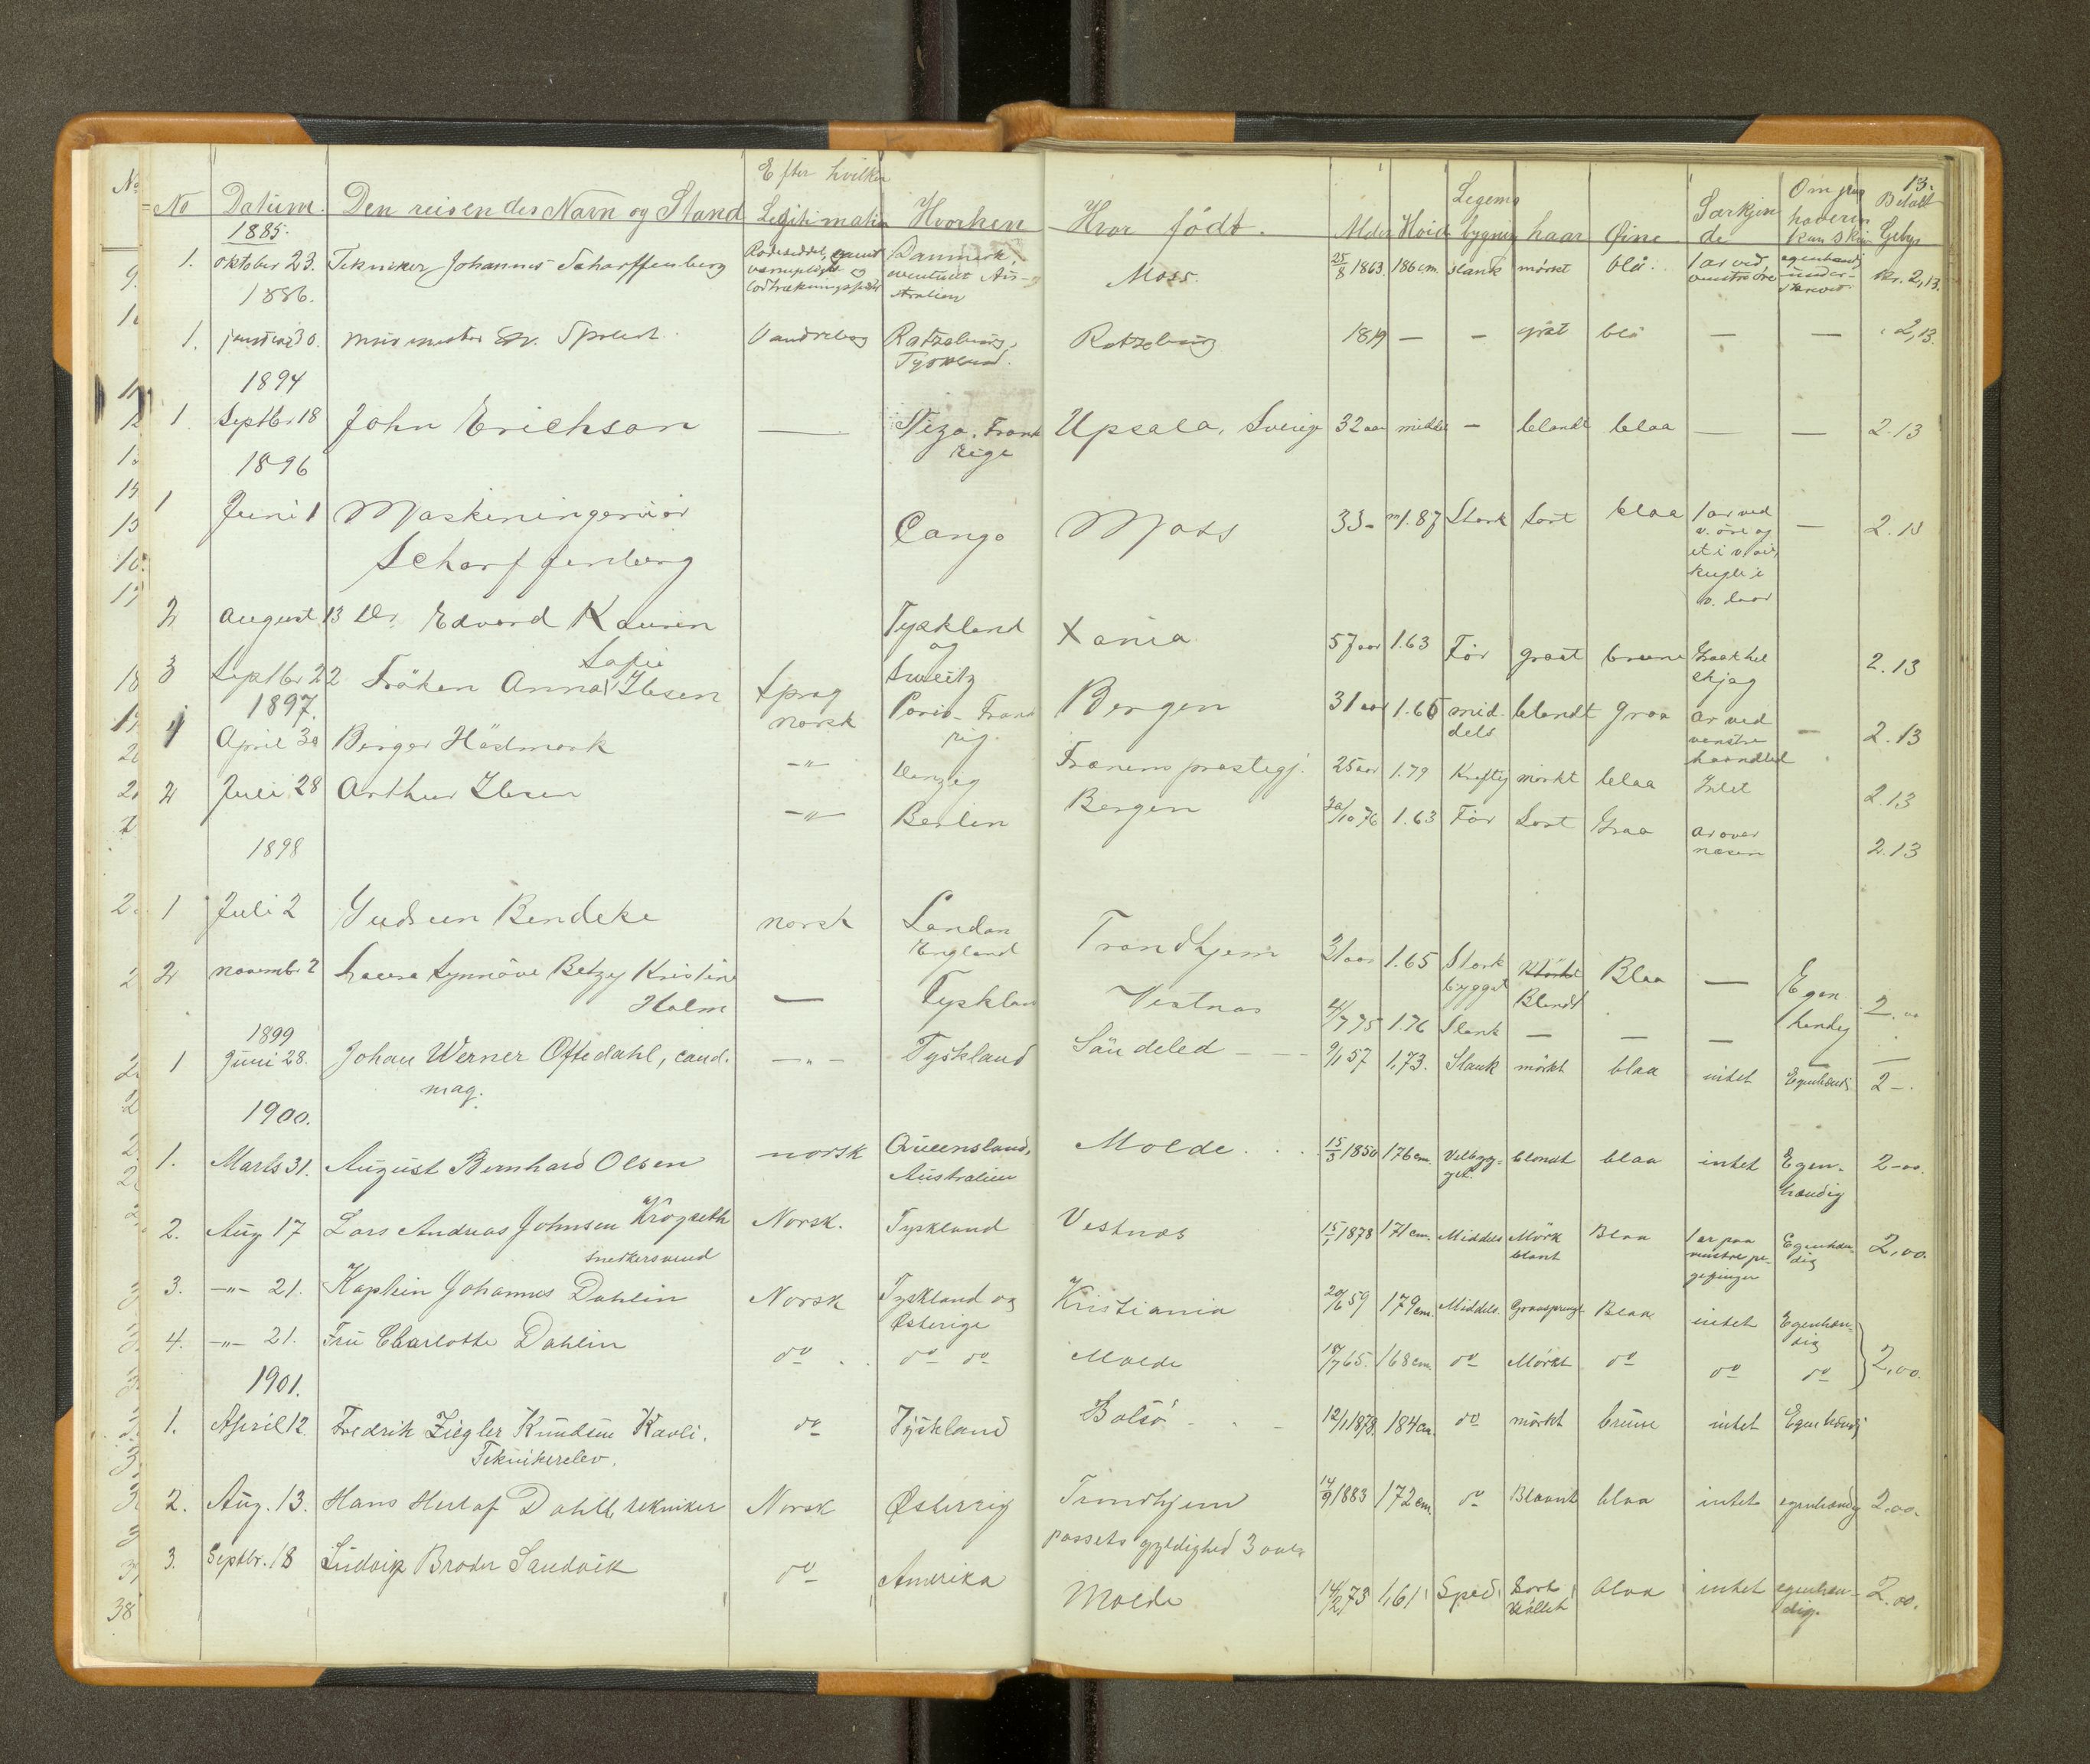 13.
No Datum. Den reisendes Navn og Stand Efter hvilken Legitimation Hvorhen Hvor födt. Alder Höide Legems bygning haar Øine Særkjende Om pas haveren kan skrive Betalt Gebyr
1885.
1. Oktober 23. Tekniker Johannes Scharffenberg Danmark, eventuelt Australien Moss. 25/8 1863. 186 cm. slank mörkt blå. 1 ar ved venstre öre egenhændig under- Kr. 2,13.
1886.
1. januar 30. murmester Vandrebog Ratzeburg, Tyskland. Ratzeburg 1819 — — gråt blå — — 2,13.
1894
1 Septbr 18 John Erichson — Frankrige Upsala, Sverige 32 aar middel — blondt blaa — — 2.13
1896
1 Juni 1 Maskiningeniör Scharffenberg Congo Moss 33 m 1.87 Stark Sort blaa 1 ar ved v. öre og et i v. kugle i v. laar — 2.13
2 August 13 Dr. Edvard Kaurin Tyskland og Sweitz Xania 57 aar 1.63 För graat brune Graat hel skjæg 2.13
3 Septbr 22 Fröken Anna Sofie Ibsen Sprog norsk Paris - Frankrig. Bergen 31 aar 1.65 middels blondt graa ar ved venstre haandled — 2.13
1897.
1 April 30 Birger Hödmark —"— Danzig Frænens præstegj. 25 aar 1.79 Kraftig mörkt blaa Intet 2.13
2 Juli 28 Arthur Ibsen —"— Berlin Bergen 30/10 76 1.63 För Sort Graa ar over næsen 2.13
1898
1 Juli 2 Gudrun Bendeke norsk London England Trondhjem 31 aar 1.65 Stærk bygget Blondt Blaa — Egenhendig 2.00
2 novemb 2 Laura Synnöve Betzy Kristine Holm — Tyskland Vestnæs 4/7 75 1.76 Slank — — — —
1899
1 Juni 28. Johan Werner Oftedahl, cand. mag. —"— Tyskland Söndeled 9/1 57 1,73. Slank mörkt blaa intet Egenhændig 2 -.
1900.
1. Marts 31. August Bernhard Olsen norsk Queensland, Australien Molde 15/3 1850 176 cm. Velbygget. blondt blaa intet Egenhændig 2-00.
2. Aug 17 Lars Andreas Johnsen Krogsæth snedkersvend Norsk. Tyskland Vestnæs 15/1 1878 171 cm. Middels Mörk blont Blaa 1 ar paa venstre pegefinger Egenhændig 2,00.
3. —"— 21. Kaptein Johannes Dahlin Norsk Tyskland og Østerige Kristiania 20/6 59 179 cm. Middels. Graasprengt Blaa intet Egenhændig
4. —"— 21. Fru Charlotte Dahlin do do do Molde 18/7 65. 168 cm. do Mörkt do do do 2,00.
1901.
1. April 12. Fredrik Ziegler Knudsen Kavli. Teknikerelev. do Tyskland Bolsö 12/1 1878. 184 cm. do mörkt brune intet Egenhændig
2. Aug. 13. Hans Herlof Dahll, tekniker Norsk Østerrig Trondhjem 14/9 1883 172 cm. do Blaant blaa intet egenhændig 2.00.
passets gyldighed 3 aar
3. Septbr. 18 Ludvig Broder Sandvik do Amerika Molde 14/12 73 1,61 Sped. Sort blaa intet egenhændig. 2.00.
38